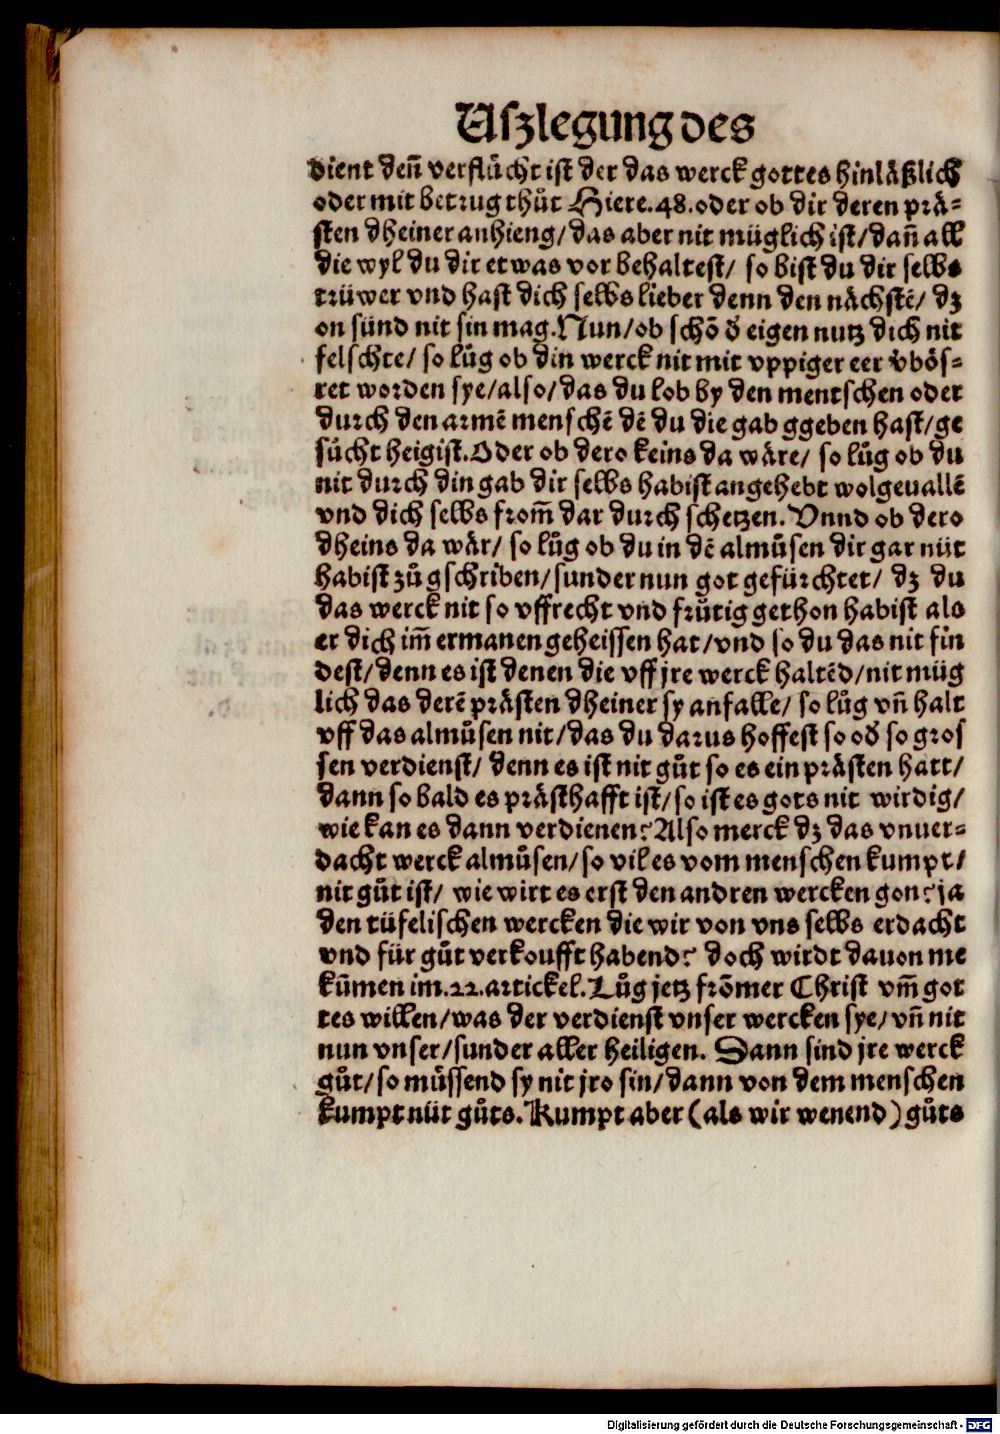 Uſzlegung des
dient deñ verflůcht iſt der das werck gottes hinläßlich
oder mit betrug thůt Hiere.48.oder ob dir deren prä-
ſten dheiner anhieng/das aber nit müglich iſt/dañ all
die wyl du dir etwas vor behalteſt/ ſo biſt du dir ſelbs
trüwer vnd haſt dich ſelbs lieber denn den nächſtē/ dz
on ſünd nit ſin mag.Nun/ob ſchō d̕ eigen nutz dich nit
felſchte/ſo lůg ob din werck nit mit vppiger eer v̄böſ-
ret worden ſye/alſo/das du lob by den mentſchen oder
durch den armē menſchē dē du die gab ggeben haſt/ge
ſůcht heigiſt.Oder ob dero keins da wäre/ ſo lůg ob du
nit durch din gab dir ſelbs habiſt angehebt wolgeuallē
vnd dich ſelbs from̄ dar durch ſchetzen.Vnnd ob dero
dheins da wär/ ſo lůg ob du in dē almůſen dir gar nüt
habiſt zůgſchriben/ſunder nun got gefürchtet/ dz du
das werck nit ſo vffrecht vnd frůtig gethon habiſt als
er dich im̄ ermanen geheiſſen hat/vnd ſo du das nit fin
deſt/denn es iſt denen die vff jre werck haltēd/nit müg
lich das derē präſten dheiner ſy anfalle/ ſo lůg vñ halt
vff das almůſen nit/das du darus hoffeſt ſo od̕ ſo groſ
ſen verdienſt/ denn es iſt nit gůt ſo es ein präſten hatt/
dann ſo bald es präſthafft iſt/ſo iſt es gots nit wirdig/
wie kan es dann verdienen? Alſo merck dz das vnuer-
dacht werck almůſen/ſo vil es vom menſchen kumpt/
nit gůt iſt/ wie wirt es erſt den andren wercken gon? ja
den tüfeliſchen wercken die wir von vns ſelbs erdacht
vnd für gůt verkoufft habend? doch wirdt dauon me
kūmen im.22.artickel.Lůg jetz frōmer Chriſt vm̄ got
tes willen/was der verdienſt vnſer wercken ſye/vñ nit
nun vnſer/ſunder aller heiligen. Dann ſind jre werck
gůt/ſo müſſend ſy nit jro ſin/dann von dem menſchen
kumpt nüt gůts.Kumpt aber (als wir wenend) gůts
Digitalisierung gefördert durch die Deutsche Forschungsgemeinschaft - DFG